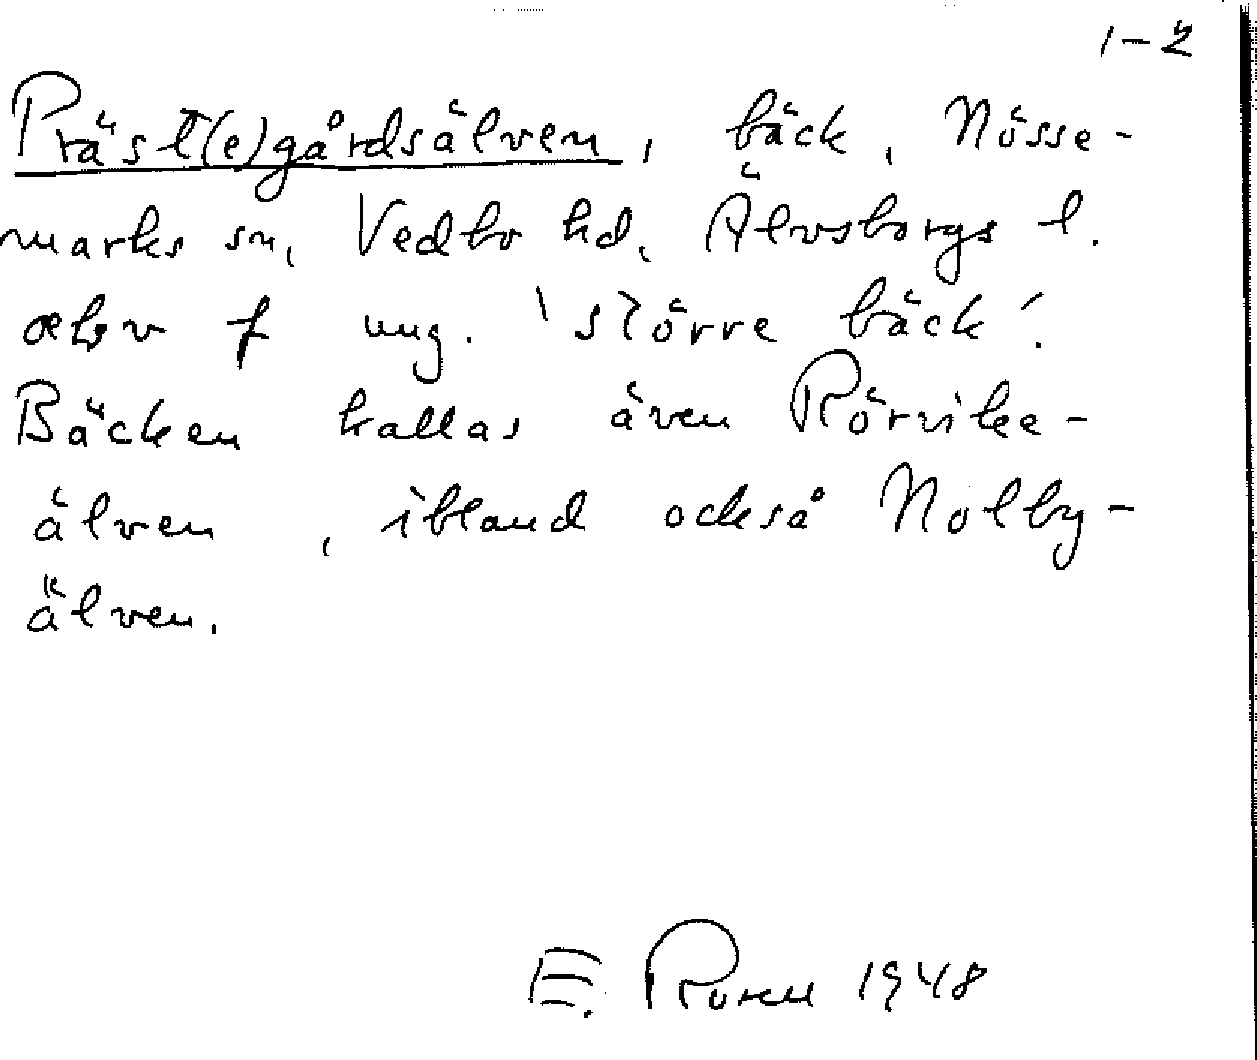 1-2
Präst(e)gårdsälven, bäck, Nösse-
marks sn, Vedbo hd, Älvsborgs l.
ælv f ung. 'större bäck'.
Bäcken kallas även Rörvike-
älven, ibland också Nolby-
älven.
E. 1948